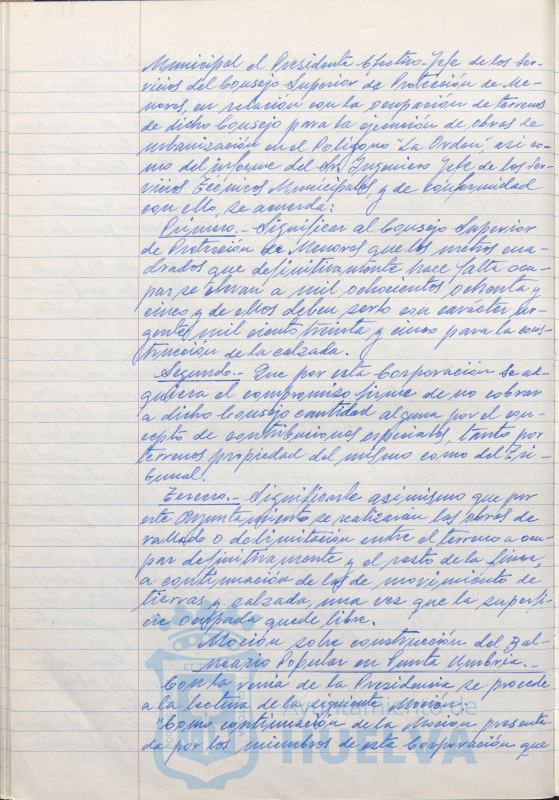 Municipal el Presidente Efectivo-Jefe de los Ser-
vicios del Consejo Superior de Protección de Me-
nores, en relación con la ocupación de terrenos
de dicho Consejo para la ejecución de obras de
urbanización en el Polígono "La Orden, así co-
mo del informe del Sr. Ingeniero Jefe de los Ser-
vicios Técnicos Municipales y de conformidad
con ello, se acuerda:
Primero.- Significar al Consejo Superior
de Protección de Menores que los metros cua-
drados que definitivamente hace falta ocu-
par se elevan a mil ochocientos ochenta y
cinco y de ellos deben serlo con carácter ur-
gente, mil ciento treinta y cinco para la cons-
trucción de la calzada.
Segundo.- Que por esta Corporación se ad-
quiera el compromiso firme de no cobrar
a dicho Consejo cantidad alguna por el con-
cepto de contribuciones especiales, tanto por
terrenos propiedad del mismo como del Tri-
bunal.
Tercero.- Significarle asimismo que por
este Ayuntamiento se realizarán las obras de
vallado o delimitación entre el terreno a ocu-
par definitivamente y el resto de la finca,
a continuación de las de movimiento de
tierras y calzada, una vez que la superfi-
cie ocupada quede libre.
Moción sobre construcción del Bal-
neario Popular en Punta Umbría.-
Con la venia de la Presidencia se procede
a la lectura de la siguiente Moción:
"Como continuación de la Moción presenta-
da por los miembros de esta Corporación que
Ayuntamiento de
HUELVA